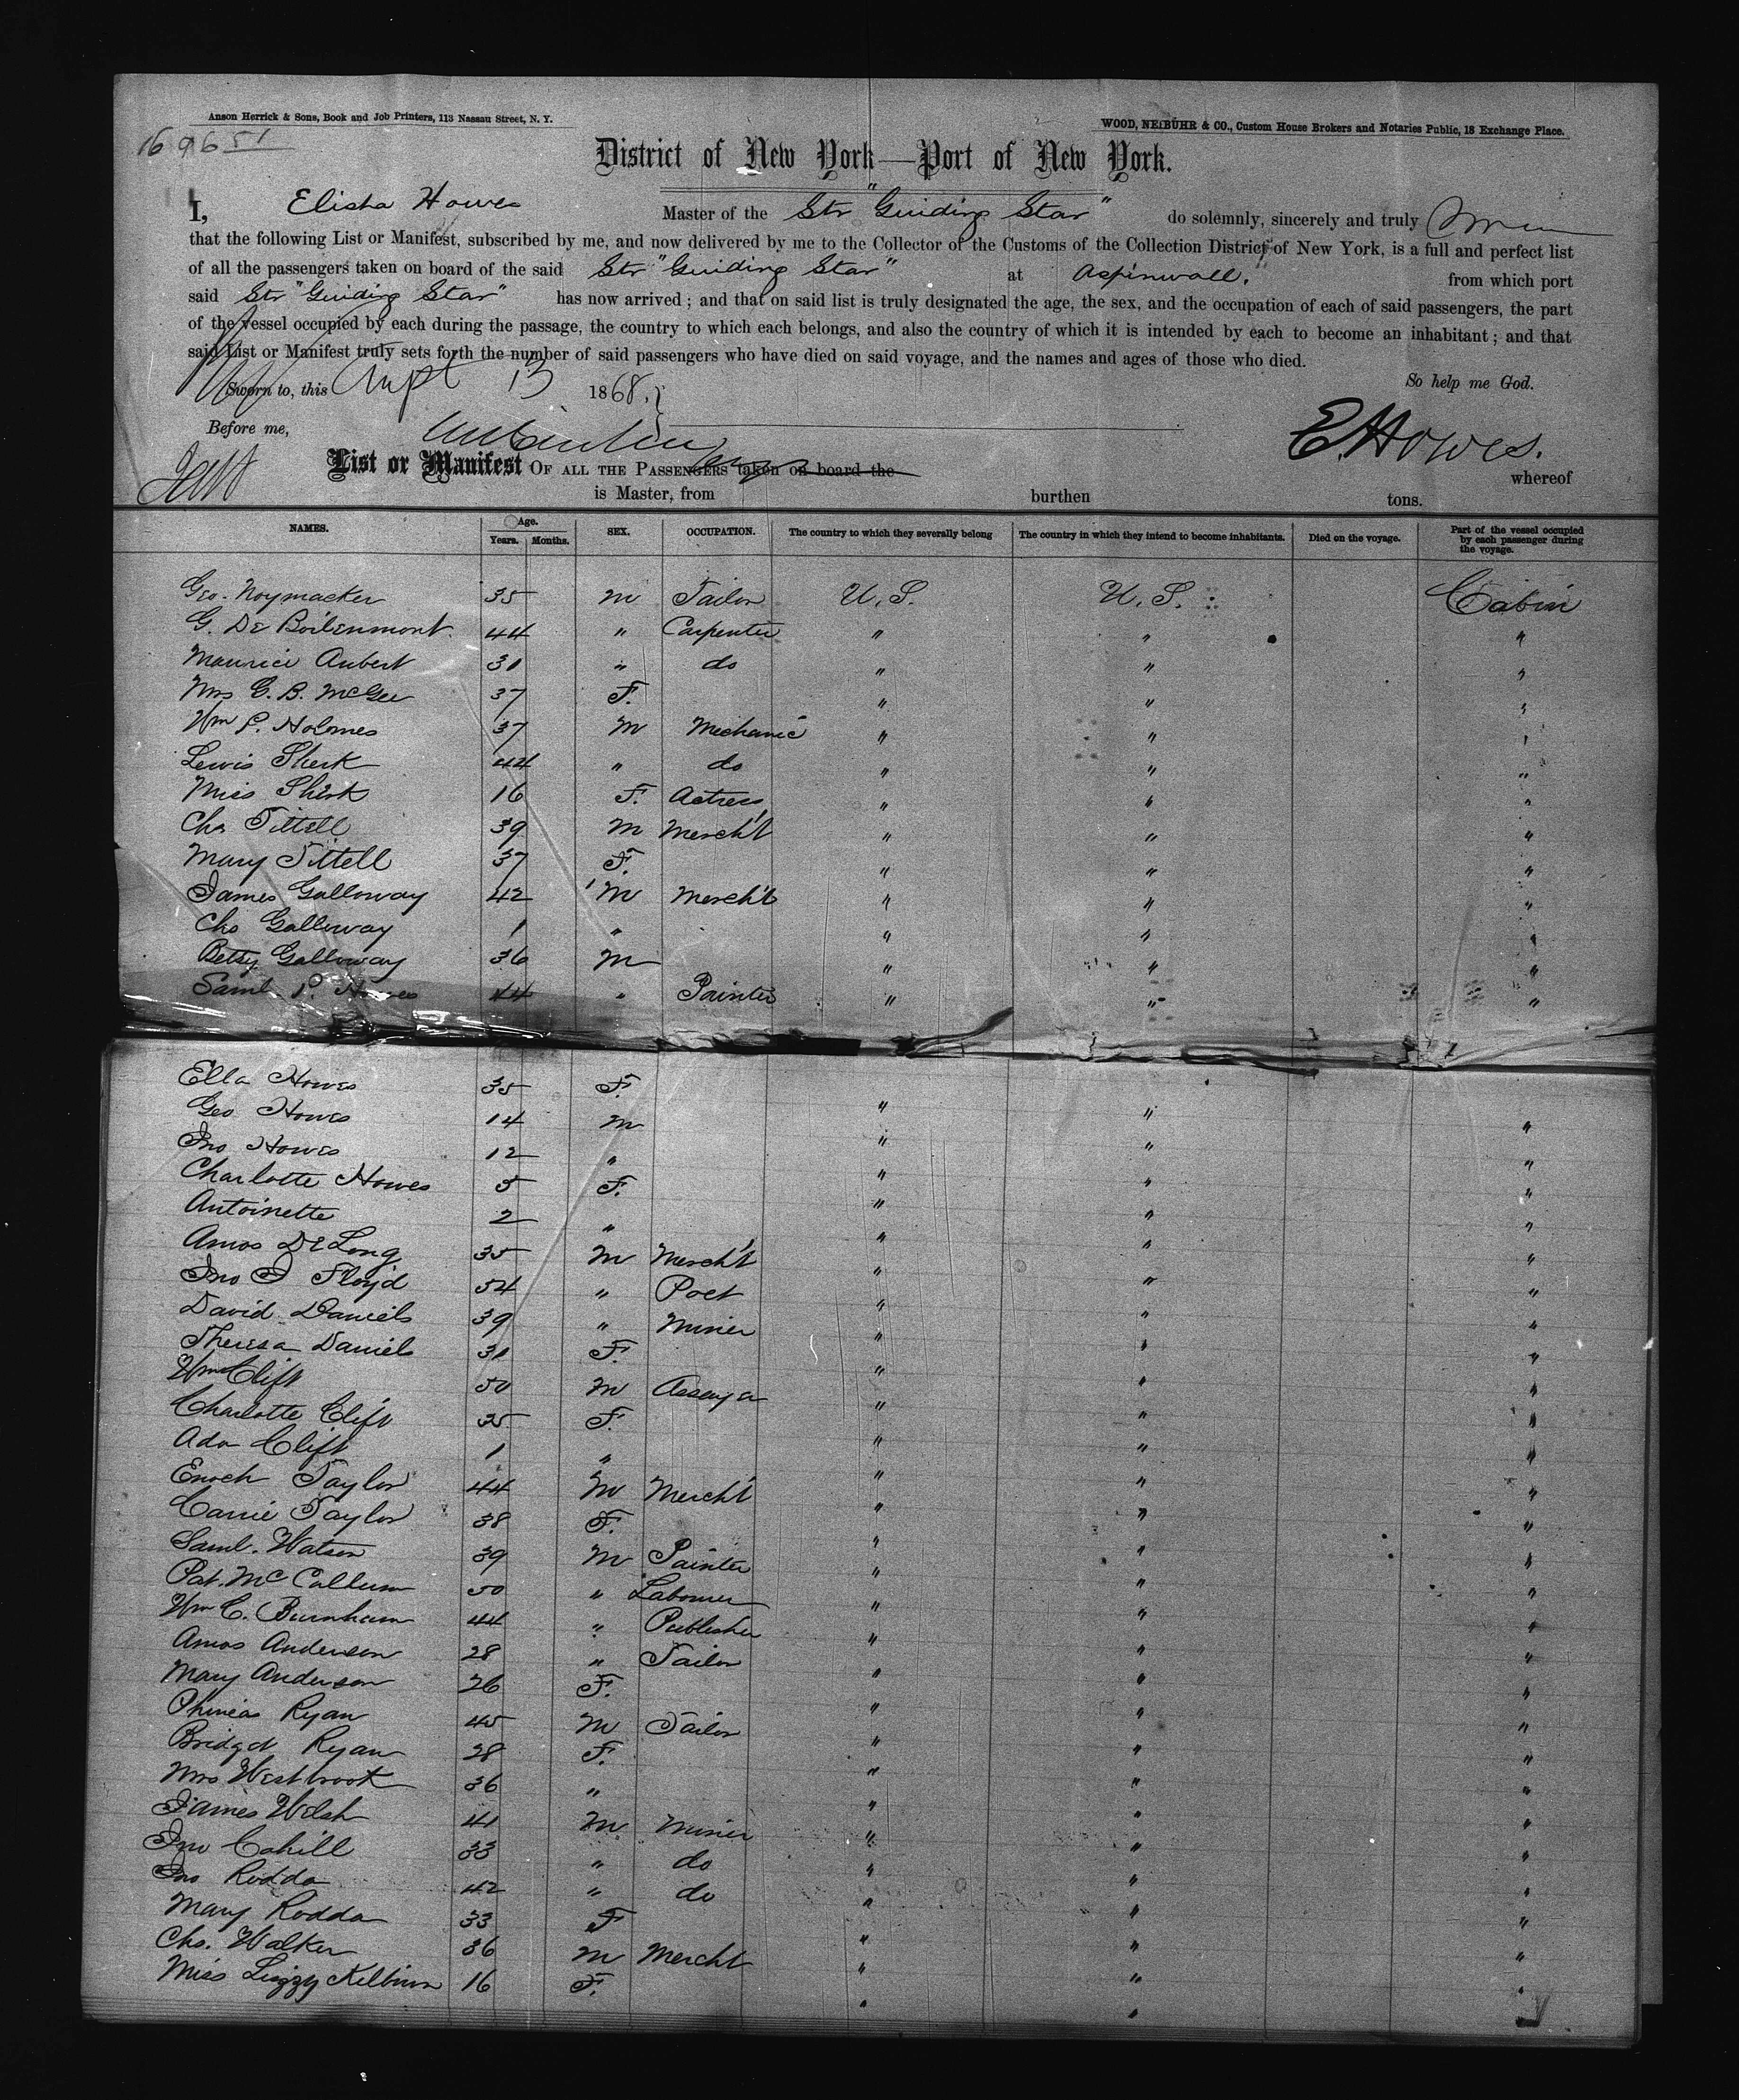 Anson Herrick & Sons, Book and Job Printers, 113 Nassau Street, N. Y.
WOOD, NEIBUHR & CO., Custom House Brokers and Notaries Public, 18 Exchange Place.
169651
District of New York—Port of New York.
I, Elisha Howes Master of the Str "Guiding Star" do solemnly, sincerely and truly
that the following List or Manifest, subscribed by me, and now delivered by me to the Collector of the Customs of the Collection District of New York, is a full and perfect list
of all the passengers taken on board of the said Str "Guiding Star" at Aspinwall. from which port
said Str "Guiding Star" has now arrived; and that on said list is truly designated the age, the sex, and the occupation of each of said passengers, the part
of the vessel occupied by each during the passage, the country to which each belongs, and also the country of which it is intended by each to become an inhabitant; and that
said List or Manifest truly sets forth the number of said passengers who have died on said voyage, and the names and ages of those who died.
Sworn to, this 13 1868. So help me God.
Before me, E. Howes.
List or Manifest OF ALL THE PASSENGERS taken on board the whereof
is Master, from burthen tons.
NAMES. Age. Years. Months. SEX. OCCUPATION. The country to which they severally belong The country in which they intend to become inhabitants. Died on the voyage. Part of the vessel occupied by each passenger during the voyage.
Geo. Noymacker 35 M Tailor U.S. U.S. Cabin
G. De Boilenmont 44 " Carpenter " " "
Maurice Aubert 30 " do " " "
Mrs C. B. McGee 37 F. " " "
Wm P. Holmes 37 M Mechanic " " "
Lewis Sherk 44 " do " " "
Miss Sherk 16 F. Actress " " "
Chs Tittell 39 M Mercht " " "
Mary Tittell 37 F. " " "
James Galloway 42 M Mercht " " "
Chs Galloway 1 " " " "
Betsy Galloway 36 M " " "
Saml P. Howes 44 " Painter " " "
Ella Howes 35 F. " " "
Geo Howes 14 M " " "
Jno Howes 12 " " " "
Charlotte Howes 5 F. " " "
Antoinette 2 " " " "
Amos DeLong 35 M Mercht " " "
Jno J Floyd 54 " Poet " " "
David Daniels 39 " Miner " " "
Theresa Daniels 30 F. " " "
Wm Clift 50 M Assayer " " "
Charlotte Clift 35 F. " " "
Ada Clift 1 " " " "
Enoch Taylor 44 M Mercht " " "
Carrie Taylor 38 F. " " "
Saml. Watson 39 M Painter " " "
Pat. McCallum 50 " Laborer " " "
Wm C. Burnham 44 " Publisher " " "
Amos Anderson 28 " Tailor " " "
Mary Anderson 26 F. " " "
Phineas Ryan 45 M Tailor " " "
Bridget Ryan 28 F. " " "
Mrs Westbrook 36 " " " "
James Welsh 41 M Miner " " "
Jno Cahill 33 " do " " "
Jno Rodda 42 " do " " "
Mary Rodda 33 F " " "
Chs. Walker 36 M Mercht " " "
Miss Lizzy Kilburn 16 F. " " "